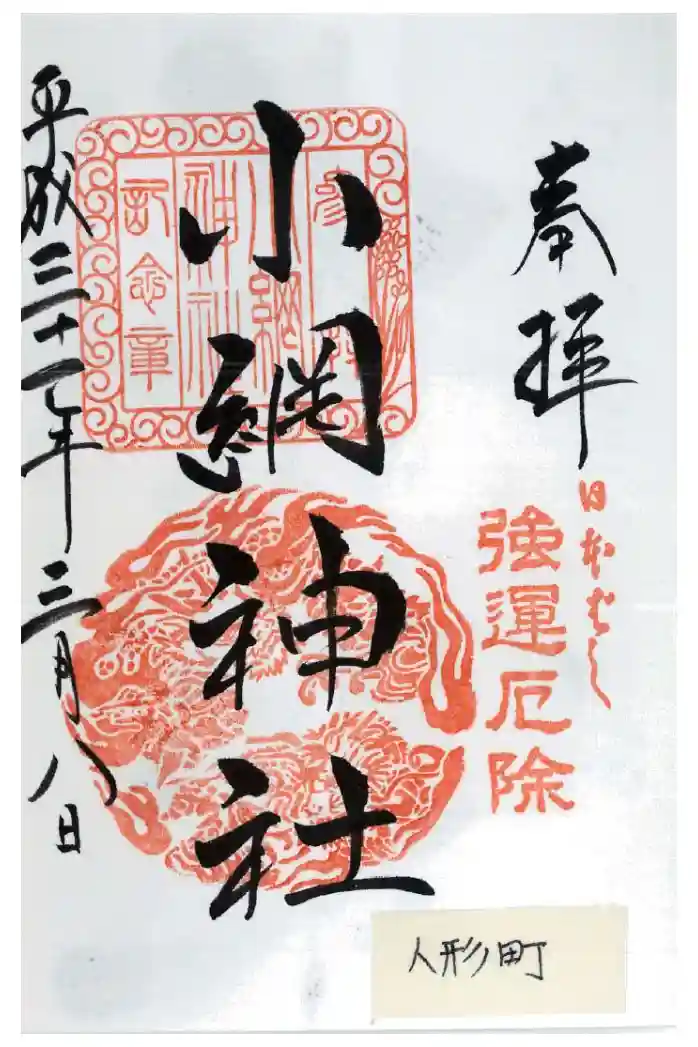 奉拝
日本ばし
強運厄除
小網神社
参拝
小網
神社
記念章
平成三十一年三月八日
人形町